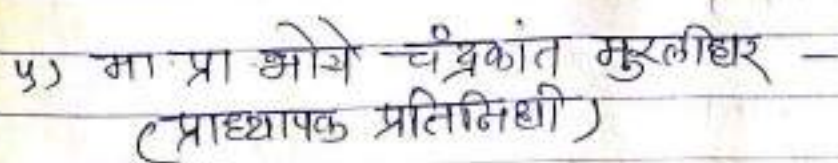 ५) मा. प्रा भोये चंद्रकांत मुरलीधर –
(प्राध्यापक प्रतिनिधी)